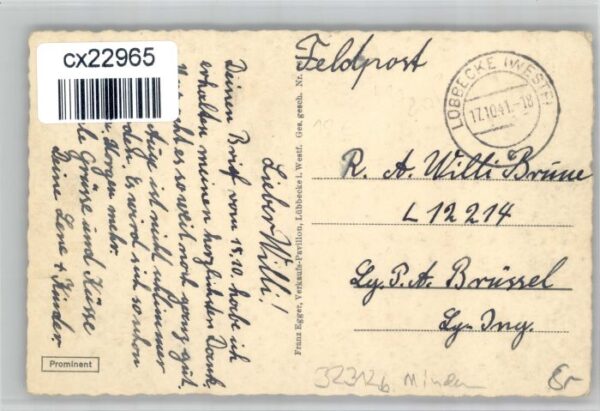 cx22965
Feldpost
LÜBBECKE (WESTF)
17.10.41.-18
R. A. Willi Brune
L 12214
Lg. P. A. Brüssel
Lieber Willi!
Deinen Brief vom 15.10. habe ich
erhalten meinen herzlichsten Dank,
geht es so weit noch ganz gut.
ist nicht schlimmer
Es wird sich schon
Morgen mehr.
Grüsse und Küsse
Deine Lene + Kinder
Franz Egger, Verkaufs-Pavillon, Lübbecke i. Westf. Ges. gesch. Nr.
Prominent
32312 b. Minden